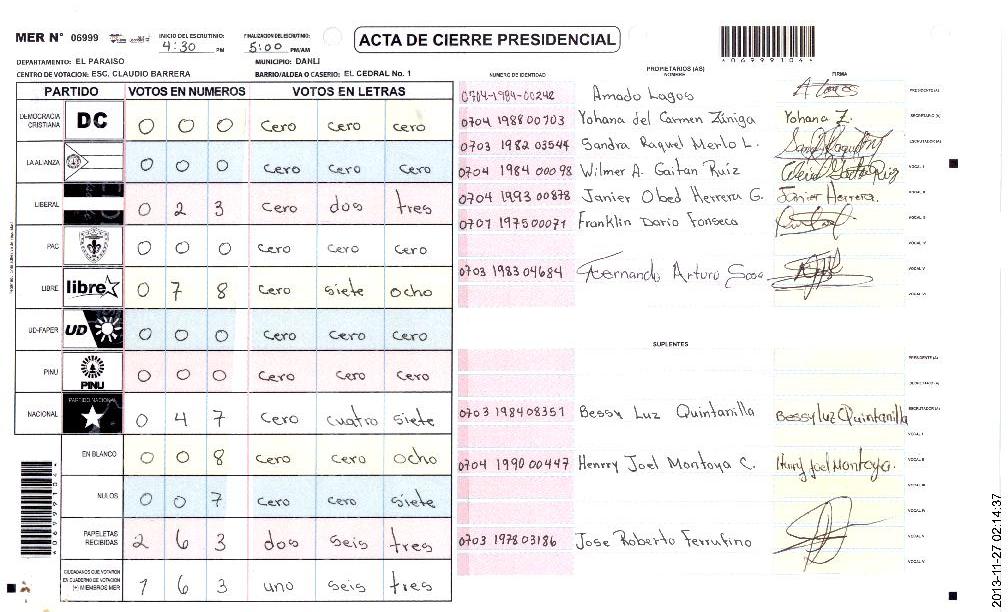 MER N° 06999
INICIO DEL ESCRUTINIO:
4:30 PM
FINALIZACION DEL ESCRUTINIO:
5:00 PM/AM
ACTA DE CIERRE PRESIDENCIAL
*06999104*
DEPARTAMENTO: EL PARAISO
MUNICIPIO: DANLI
CENTRO DE VOTACION: ESC. CLAUDIO BARRERA
BARRIO/ALDEA O CASERIO: EL CEDRAL No. 1
PARTIDO VOTOS EN NUMEROS VOTOS EN LETRAS
DEMOCRACIA CRISTIANA DC 0 0 0 cero cero cero
LA ALIANZA 0 0 0 cero cero cero
LIBERAL 0 2 3 cero dos tres
PAC 0 0 0 cero cero cero
LIBRE libre 0 7 8 cero siete ocho
UD-FAPER UD 0 0 0 cero cero cero
PINU PINU 0 0 0 cero cero cero
NACIONAL PARTIDO NACIONAL 0 4 7 cero cuatro siete
EN BLANCO 0 0 8 cero cero ocho
NULOS 0 0 7 cero cero siete
PAPELETAS RECIBIDAS 2 6 3 dos seis tres
CIUDADANOS QUE VOTARON EN CUADERNO DE VOTACION (+) MIEMBROS MER 1 6 3 uno seis tres
PROPIETARIOS (AS)
NUMERO DE IDENTIDAD NOMBRE FIRMA
0704-1984-00242 Amado Lagos PRESIDENTE(A)
0704 1988 00703 Yohana del Carmen Zúniga Yohana Z. SECRETARIO (A)
0703 1982 03544 Sandra Raquel Merlo L. ESCRUTADOR (A)
0704 1984 00098 Wilmer A. Gaitan Ruiz VOCAL I
0704 1993 00878 Janier Obed Herrera G. Janier Herrera. VOCAL II
0701 1975 00071 Franklin Dario Fonseca VOCAL III
VOCAL IV
0703 1983 04684 Fernando Arturo Sosa VOCAL V
VOCAL VI
SUPLENTES
PRESIDENTE (A)
SECRETARIO (A)
0703 1984 08351 Bessy Luz Quintanilla Bessy Luz Quintanilla ESCRUTADOR (A)
VOCAL I
0704 1990 00447 Henrry Joel Montoya C. Henrry Joel Montoya. VOCAL II
VOCAL III
VOCAL IV
0703 1978 03186 Jose Roberto Ferrufino VOCAL V
VOCAL VI
2013-11-27 02:14:37